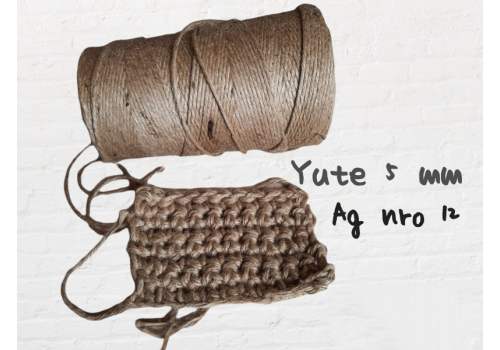 Yute 5 mm
Ag nro 12